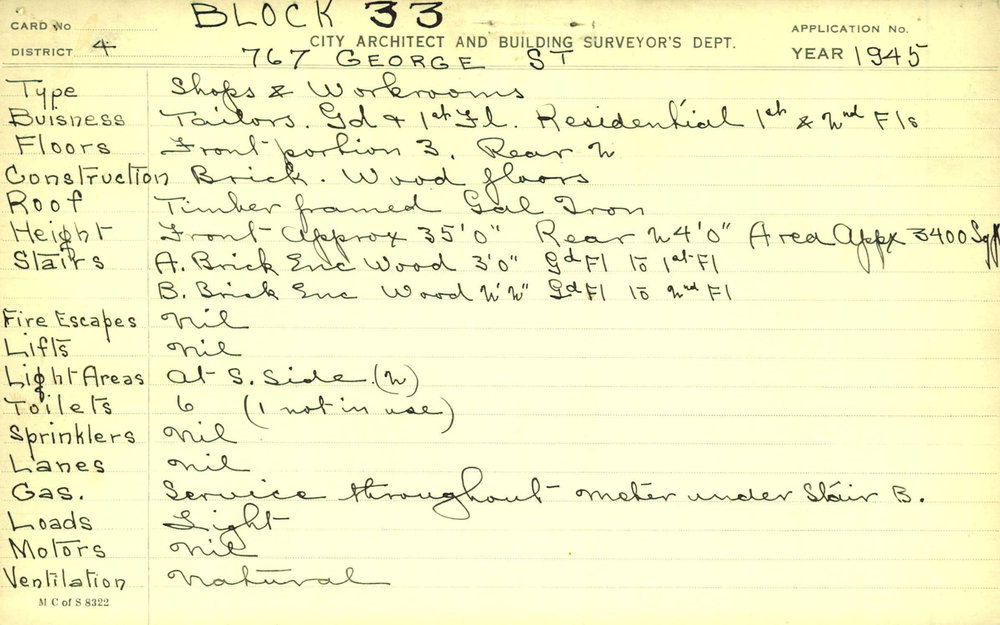 CARD No BLOCK 33 APPLICATION No.
DISTRICT 4 CITY ARCHITECT AND BUILDING SURVEYOR'S DEPT. YEAR 1945
767 GEORGE ST
Type Shops & Workrooms
Buisness Tailors. Gd + 1st Fl. Residential 1st & 2nd Fls
Floors Front portion 3. Rear 2
Construction Brick. Wood floors
Roof Timber framed Gal Iron
Height Front Approx 35'0" Rear 24'0" Area Appx 3400 Sqft
Stairs A. Brick Enc Wood 3'0" Gd Fl to 1st Fl
B. Brick Enc Wood 2'2" Gd Fl to 2nd Fl
Fire Escapes Nil
Lifts Nil
Light Areas at S. Side (2)
Toilets 6 (1 not in use)
Sprinklers Nil
Lanes Nil
Gas. Service throughout meter under Stair B.
Loads Light
Motors Nil
Ventilation Natural
M C of S 8322